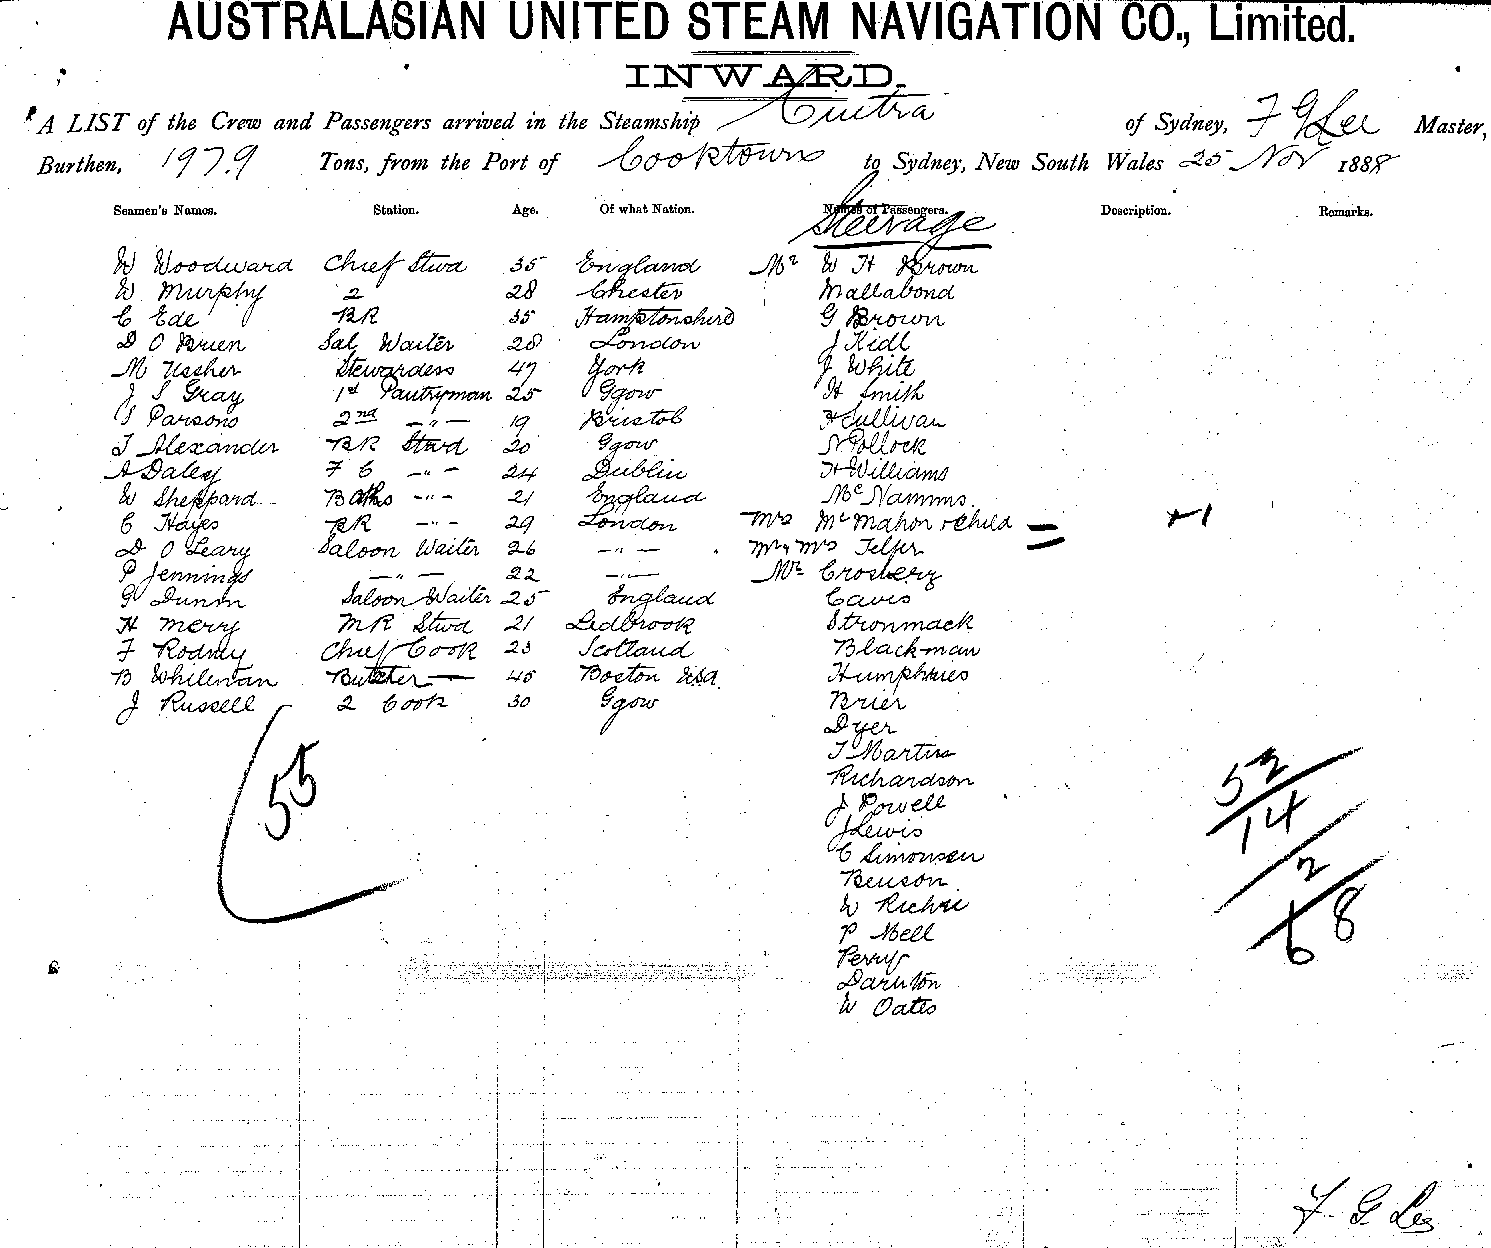 AUSTRALASIAN UNITED STEAM NAVIGATION CO., Limited.
INWARD.
A LIST of the Crew and Passengers arrived in the Steamship Cintra of Sydney, F G Lee Master,
Burthen, 1979 Tons, from the Port of Cooktown to Sydney, New South Wales 25 Nov 1888
Seamen's Names. Station. Age. Of what Nation. Names of Passengers. Description. Remarks.
Steerage
W Woodward Chief Stwd 35 England Mr W H Brown
W Murphy 2 28 Chester Mallabond
C Ede BR 35 Hamptonshird G Brown
D O Brien Sal Waiter 28 London J Kidl
M Ussher Stewardess 47 York J White
J S Gray 1st Pantryman 25 Ggow H Smith
S Parsons 2nd -"- 19 Bristol H Sullivan
T Alexander BR Stwd 20 Ggow N Pollock
A Daley F C -"- 24 Dublin H Williams
W Sheppard Baths -"- 21 England Mc Namms
C Hayes BR -"- 29 London Mrs McMahon + Child = +1
D O Leary Saloon Waiter 26 -"- Mr & Mrs Telfer
P Jennings -"- 22 -"- Mr Crosberg
G Dunon Saloon Waiter 25 England Cavis
H Merry MR Stwd 21 Ledbrook Stronmack
F Rodney Chief Cook 23 Scotland Blackman
B Whileman Butcher 45 Boston USA Humphries
J Russell 2 Cook 30 Ggow Brier
Dyer
T Martin
Richardson
J Powell
J Lewis
C Simonsen
Benson
W Richie
P Mell
Perry
Darnton
W Oates
55
52
14
2
68
F G Lee